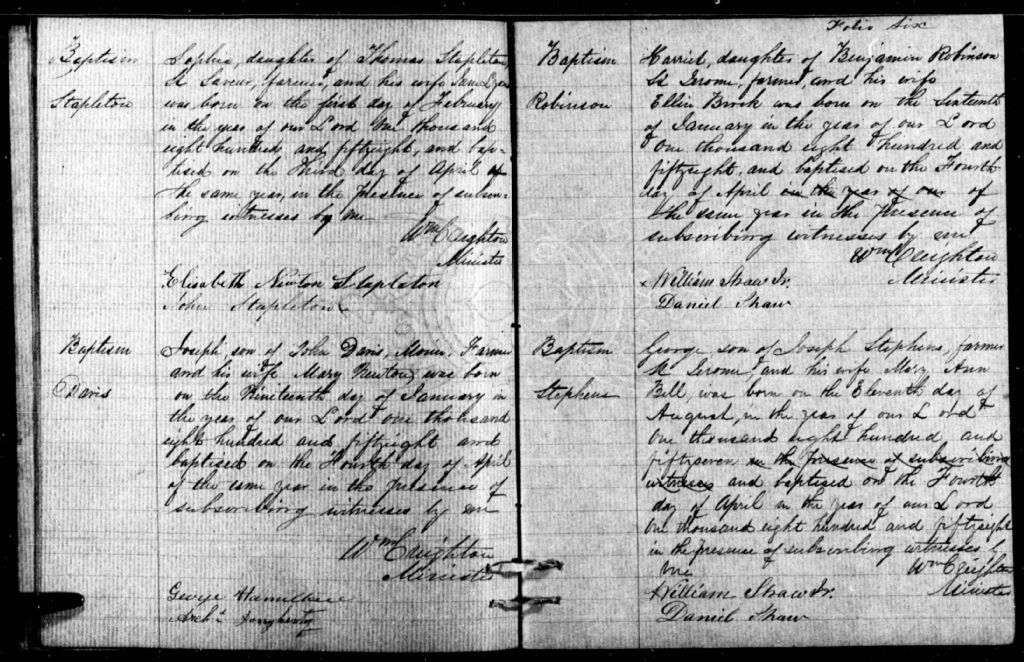 Baptism
Stapleton
Sophia, daughter of Thomas Stapleton,
St Saveur, farmer, and his wife Jane
was born on the first day of February
in the year of our Lord One thousand
eight hundred and fiftyeight, and bap-
tised on the Third day of April of
the same year, in the presence of subscri-
bing witnesses by me
Wm Creighton
Minister
Elisabeth Newton Stapleton
John Stapleton
Baptism
Davis
Joseph, son of John Davis, Morin, Farmer
and his wife Mary Newton, was born
on the Nineteenth day of January in
the year of our Lord one thousand
eight hundred and fiftyeight and
baptised on the Fourth day of April
of the same year in the presence of
subscribing witnesses by me
Wm Creighton
Minister
George Hamilton
Archd
Folio Six
Baptism
Robinson
Harriet, daughter of Benjamin Robinson
St Jerome, farmer, and his wife
Ellen Brock was born on the Sixteenth
of January in the year of our Lord
One thousand eight hundred and
fiftyeight, and baptised on the Fourth
day of April in the year of our of
the same year in the presence of
subscribing witnesses by me
Wm Creighton
Minister
William Shaw Jr.
Daniel Shaw
Baptism
Stephens
George son of Joseph Stephens, farmer
St Jerome, and his wife Mary Ann
Bell, was born on the Eleventh day of
August, in the year of our Lord
One thousand eight hundred and
fiftyseven in the presence of subscribing
witnesses and baptised on the Fourth
day of April in the year of our Lord
One thousand eight hundred and fiftyeight
in the presence of subscribing witnesses by
me
Wm Creighton
Minister
William Shaw Jr.
Daniel Shaw